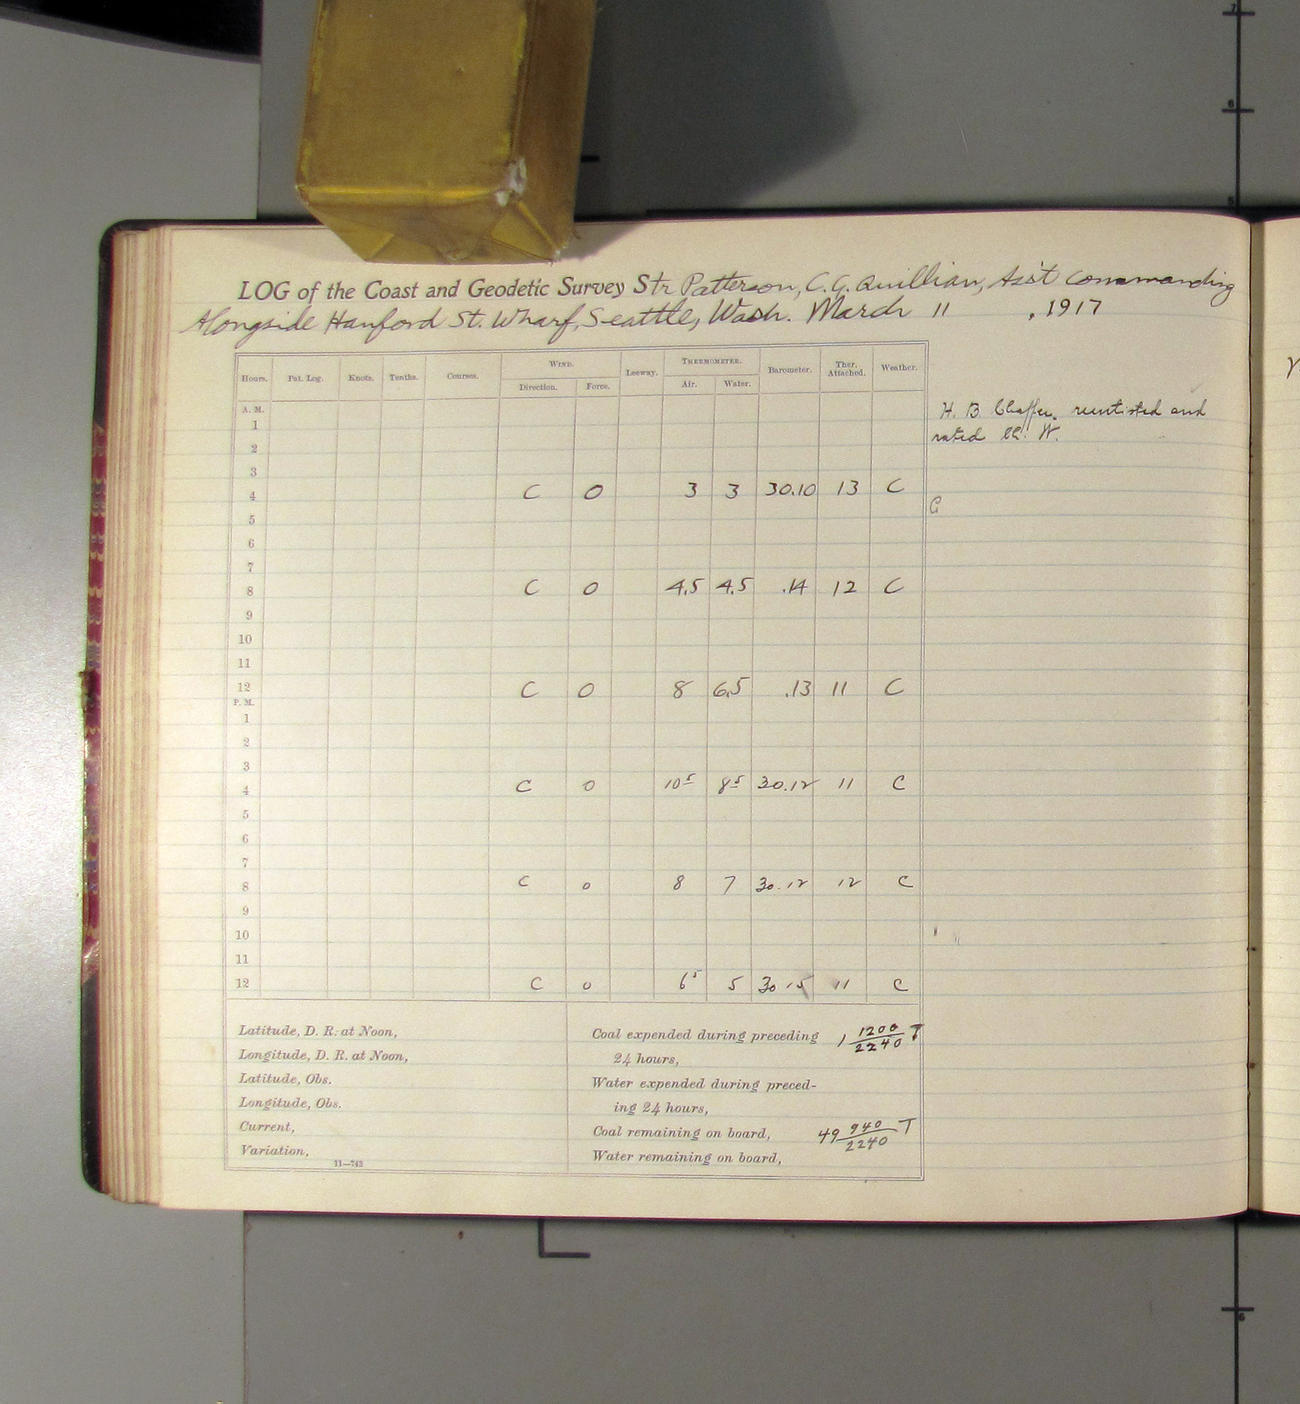 LOG of the Coast and Geodetic Survey Str Patterson, C.G. Quillian, Ass't Commanding
Alongside Hanford St. Wharf, Seattle, Wash. March 11, 1917
Hours. Pat. Log. Knots. Tenths. Courses. WIND. Leeway. THERMOMETER. Barometer. Ther. Attached. Weather.
Direction. Force. Air. Water.
A. M.
1
2
3
4 C 0 3 3 30.10 13 C
5
6
7
8 C 0 4.5 4.5 .14 12 C
9
10
11
12 C 0 8 6.5 .13 11 C
P. M.
1
2
3
4 C 0 10 5 8 5 30.12 11 C
5
6
7
8 C 0 8 7 30.12 12 C
9
10
11
12 C 0 6 5 5 30.15 11 C
H. B. and
rated W.
Latitude, D. R. at Noon,
Longitude, D. R. at Noon,
Latitude, Obs.
Longitude, Obs.
Current,
Variation,
11—743
Coal expended during preceding 24 hours, 1 1200/2240 T
Water expended during preced-
ing 24 hours,
Coal remaining on board, 49 940/2240 T
Water remaining on board,